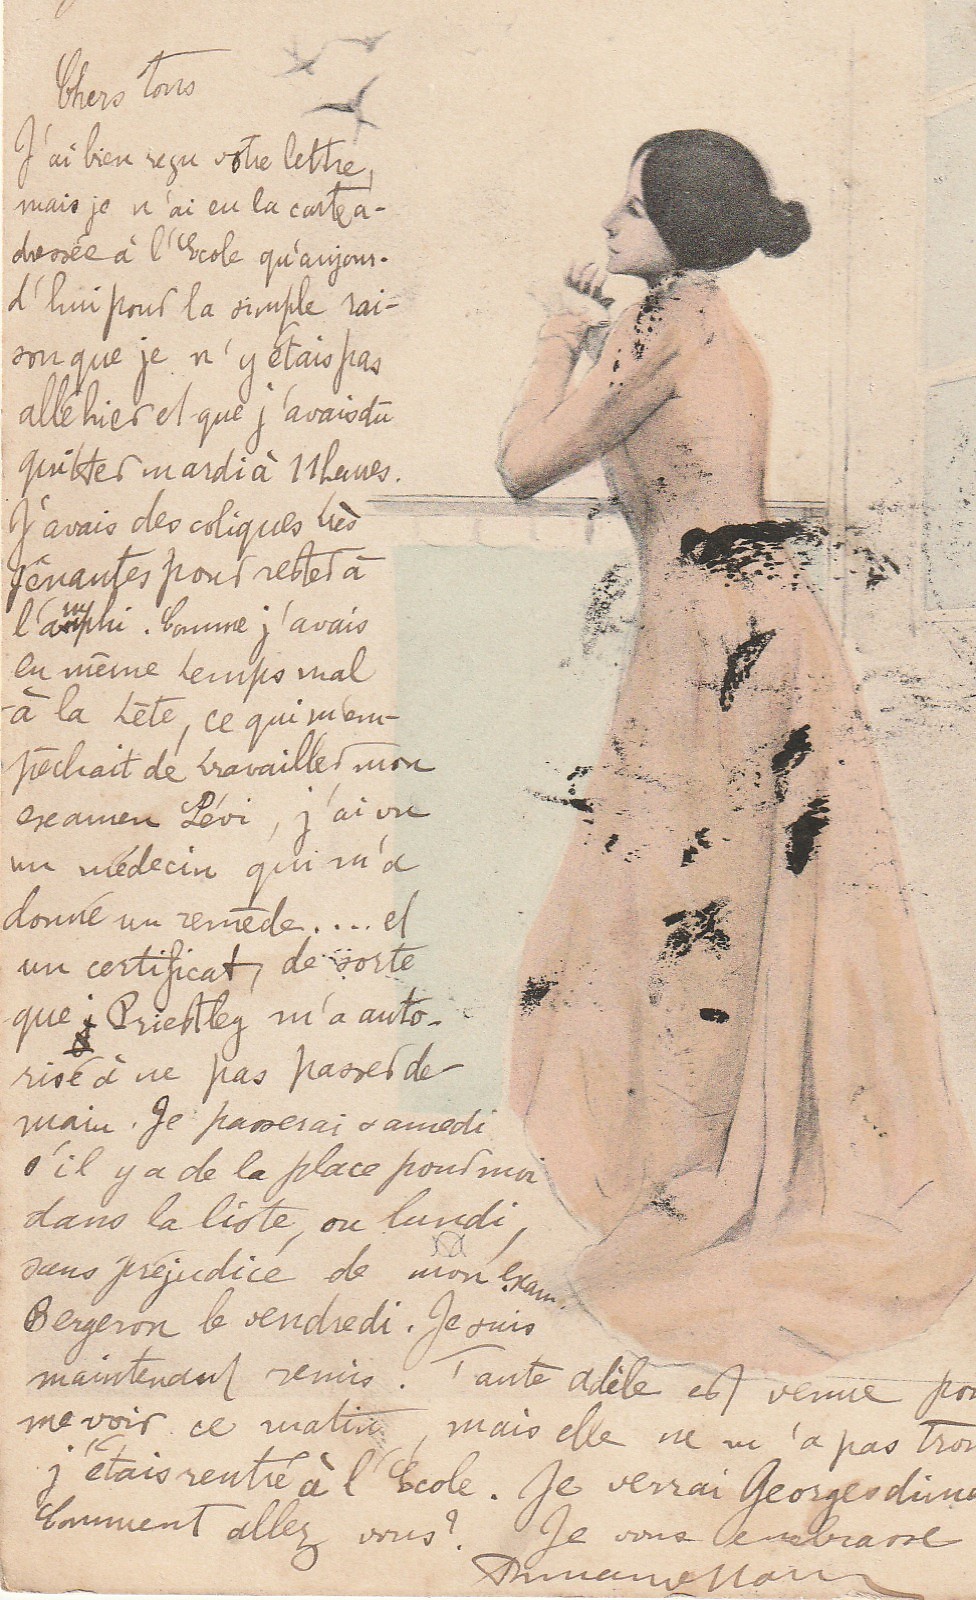 Chers tous
J'ai bien reçu votre lettre,
mais je n'ai eu la carte a-
dressée à l'Ecole qu'aujour-
d'hui pour la simple rai-
son que je n'y étais pas
allé hier et que j'avais du
quitter mardi à 11 heures.
J'avais des coliques très
gênantes pour rester à
l'amphi. Comme j'avais
en même temps mal
à la tête, ce qui m'em-
pêchait de travailler mon
examen Lévi, j'ai vu
un médecin qui m'a
donné un remède.... et
un certificat, de sorte
que Priestley m'a auto-
risé à ne pas passer de-
main. Je passerai samedi
s'il y a de la place pour moi
dans la liste, ou lundi,
sans préjudice de mon exam.
Bergeron le vendredi. Je suis
maintenant remis. Tante Adèle est venue pou
me voir ce matin, mais elle ne m'a pas trou
j'étais rentré à l'Ecole. Je verrai Georges dima
Comment allez vous? Je vous embrasse